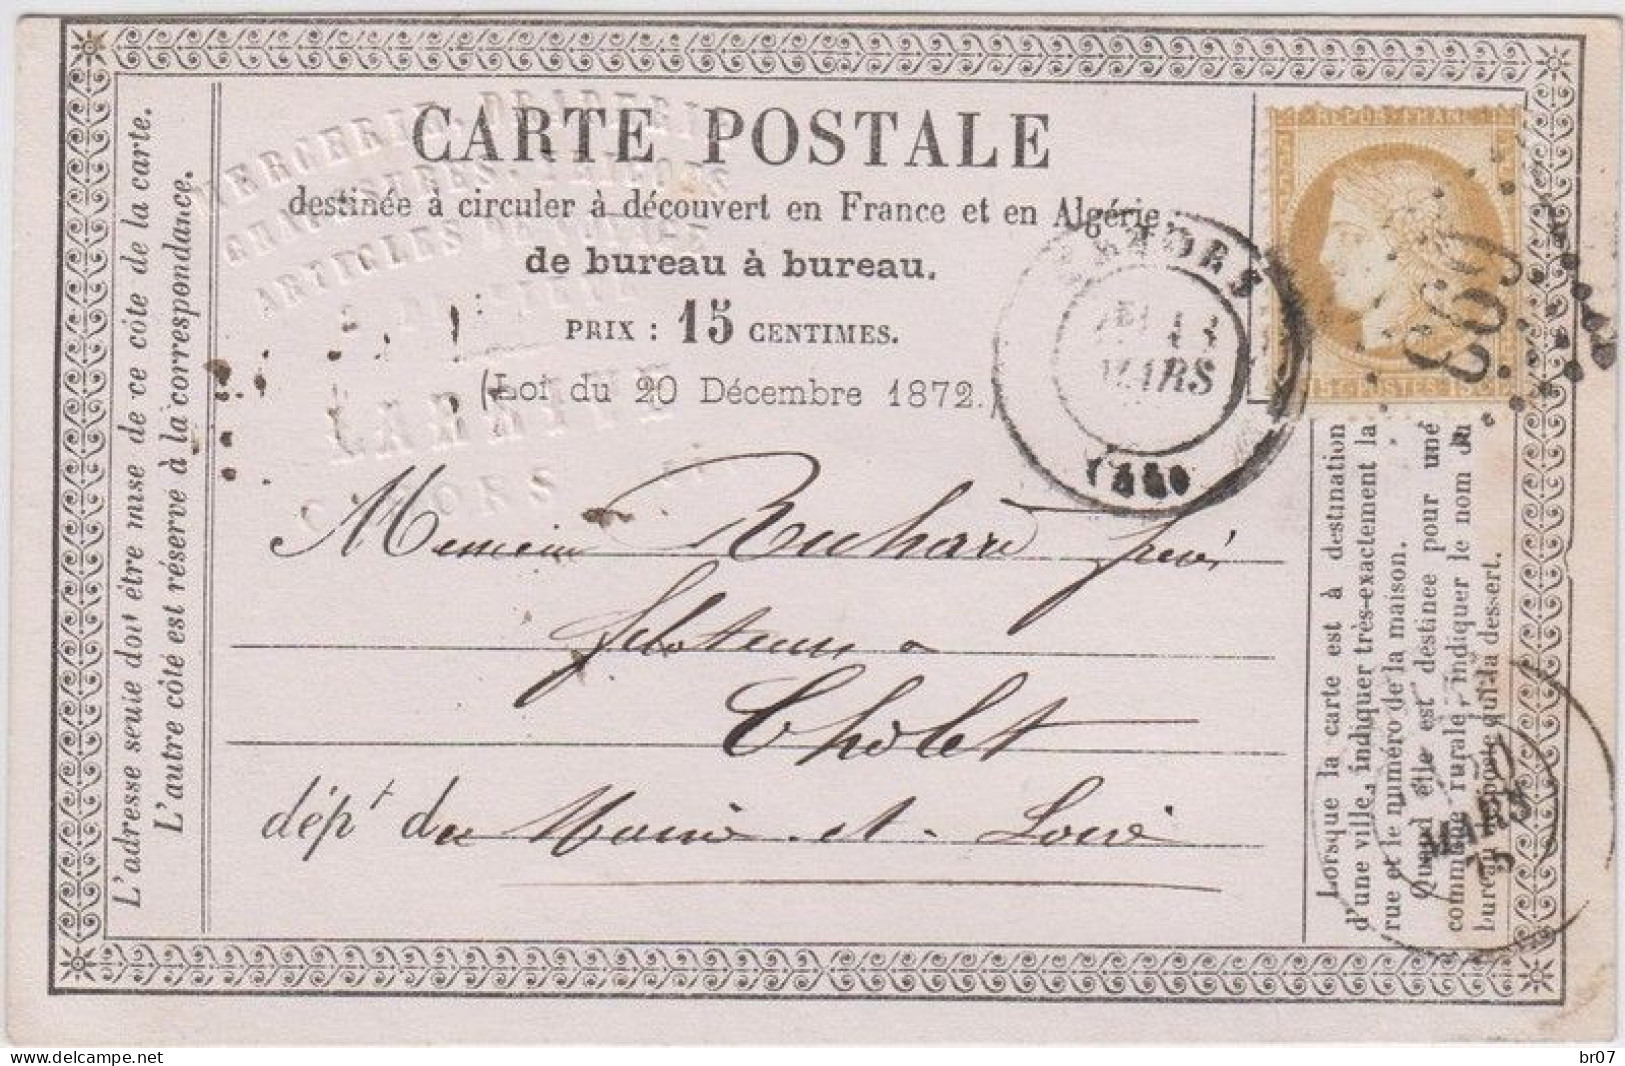 CARTE POSTALE
destinée à circuler à découvert en France et en Algérie
de bureau à bureau.
PRIX : 15 CENTIMES.
(Loi du 20 Décembre 1872.)
L'adresse seule doit être mise de ce côté de la carte.
L'autre côté est réservé à la correspondance.
MERCERIE
ARTICLES
LARRIVE
CAHORS
REPUB FRANC
15 C POSTES 15 C
CAHORS
MARS
Messieurs Richard frères
filateurs à
Cholet
dépt de Maine-et-Loire
Lorsque la carte est à destination
d'une ville, indiquer très-exactement la
rue et le numéro de la maison.
Quand elle est destinée pour une
commune rurale, indiquer le nom du
bureau de poste qui la dessert.
MARS
br07